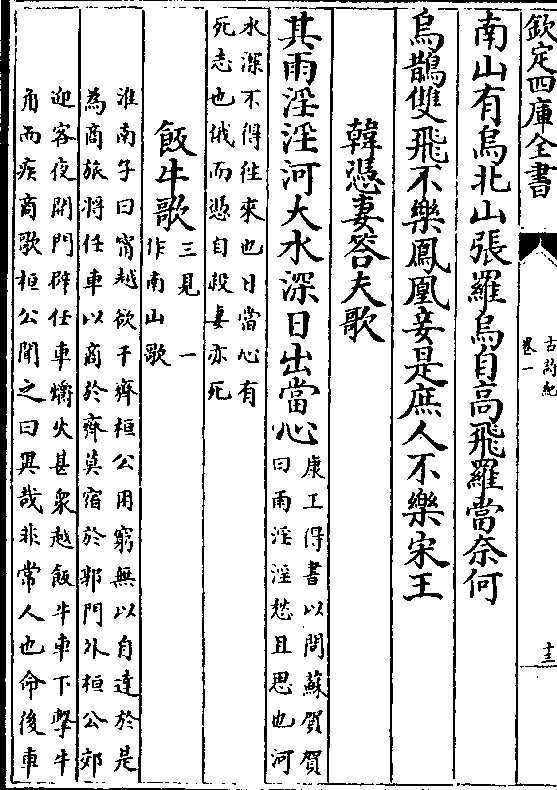 欽定四庫全書
古詩紀
卷一
十三
南山有烏北山張羅烏自高飛羅當奈何
烏鵲雙飛不樂鳳凰妾是庶人不樂宋王
韓憑妻答夫歌
其雨淫淫河大水深日出當心
康王得書以問蘇賀賀
曰雨淫淫愁且思也河
水深不得往來也日當心有
死志也俄而憑自殺妻亦死
飯牛歌
三見 一
作南山歌
淮南子曰甯越欲干齊桓公用窮無以自達於是
為商旅將任車以商於齊莫宿於郭門外桓公郊
迎客夜開門辟任車爝火甚衆越飯牛車下擊牛
角而疾商歌桓公聞之曰異哉非常人也命後車